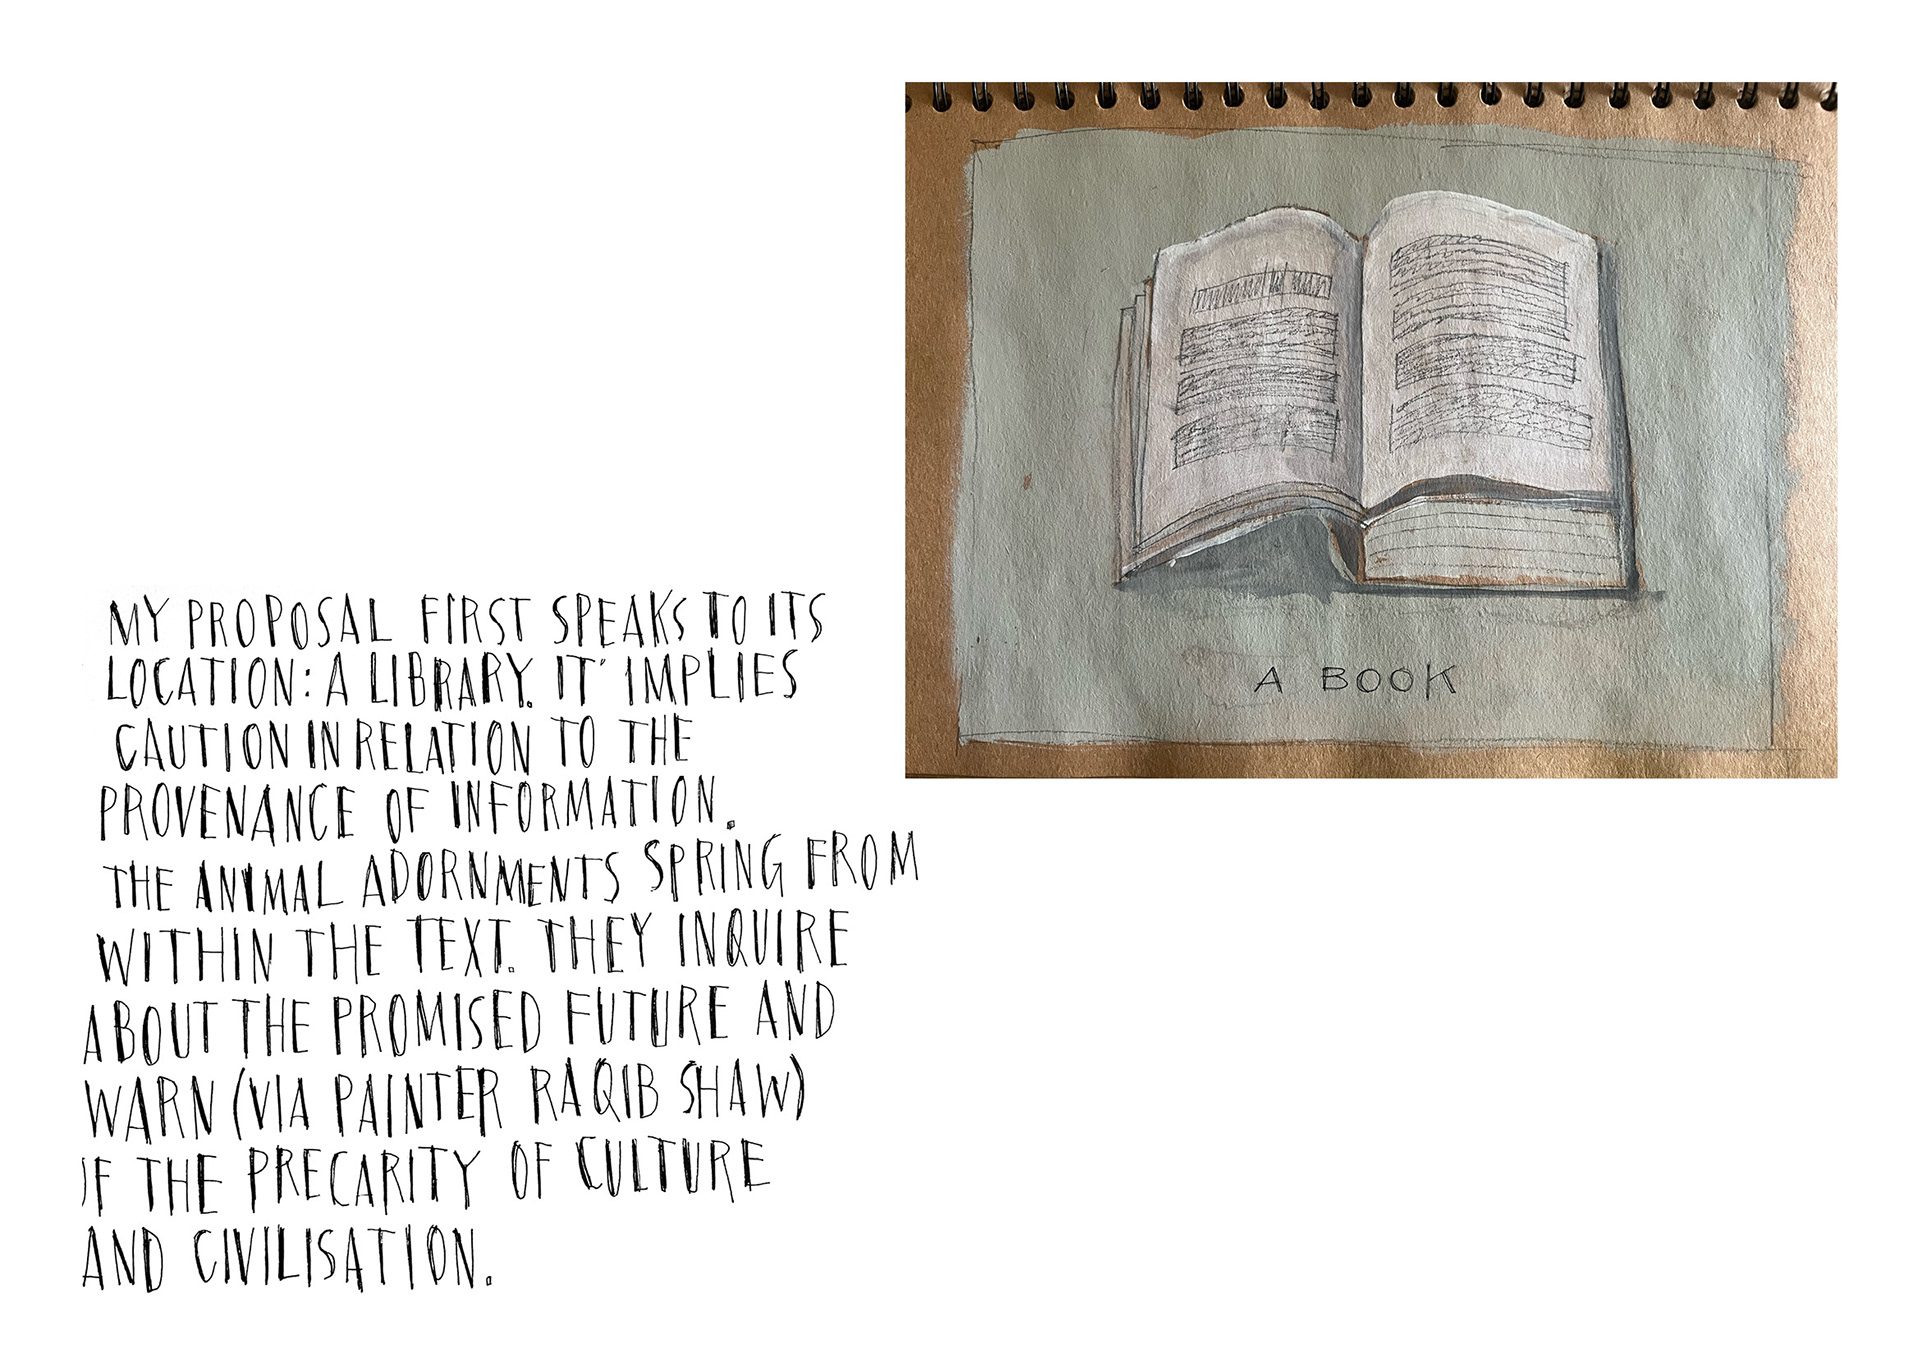 MY PROPOSAL FIRST SPEAKS TO ITS
LOCATION: A LIBRARY. IT' IMPLIES
CAUTION IN RELATION TO THE
PROVENANCE OF INFORMATION.
THE ANIMAL ADORNMENTS SPRING FROM
WITHIN THE TEXT. THEY INQUIRE
ABOUT THE PROMISED FUTURE AND
WARN (VIA PAINTER RAQIB SHAW)
OF THE PRECARITY OF CULTURE
AND CIVILISATION.
A BOOK